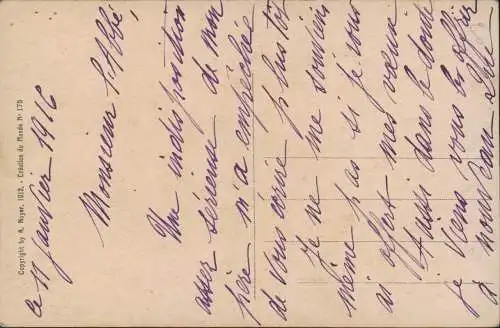 Copyright by A. Noyer, 1912. - Création du Monde N° 175
le 11 janvier 1916
Monsieur l'Abbé,
Une indisposition
assez sérieuse de mon
père m'a empêchée
de vous écrire plus tôt
Je ne me souviens
même pas si je vous
ai offert mes vœux
Aussi dans le doute
je viens vous les offrir